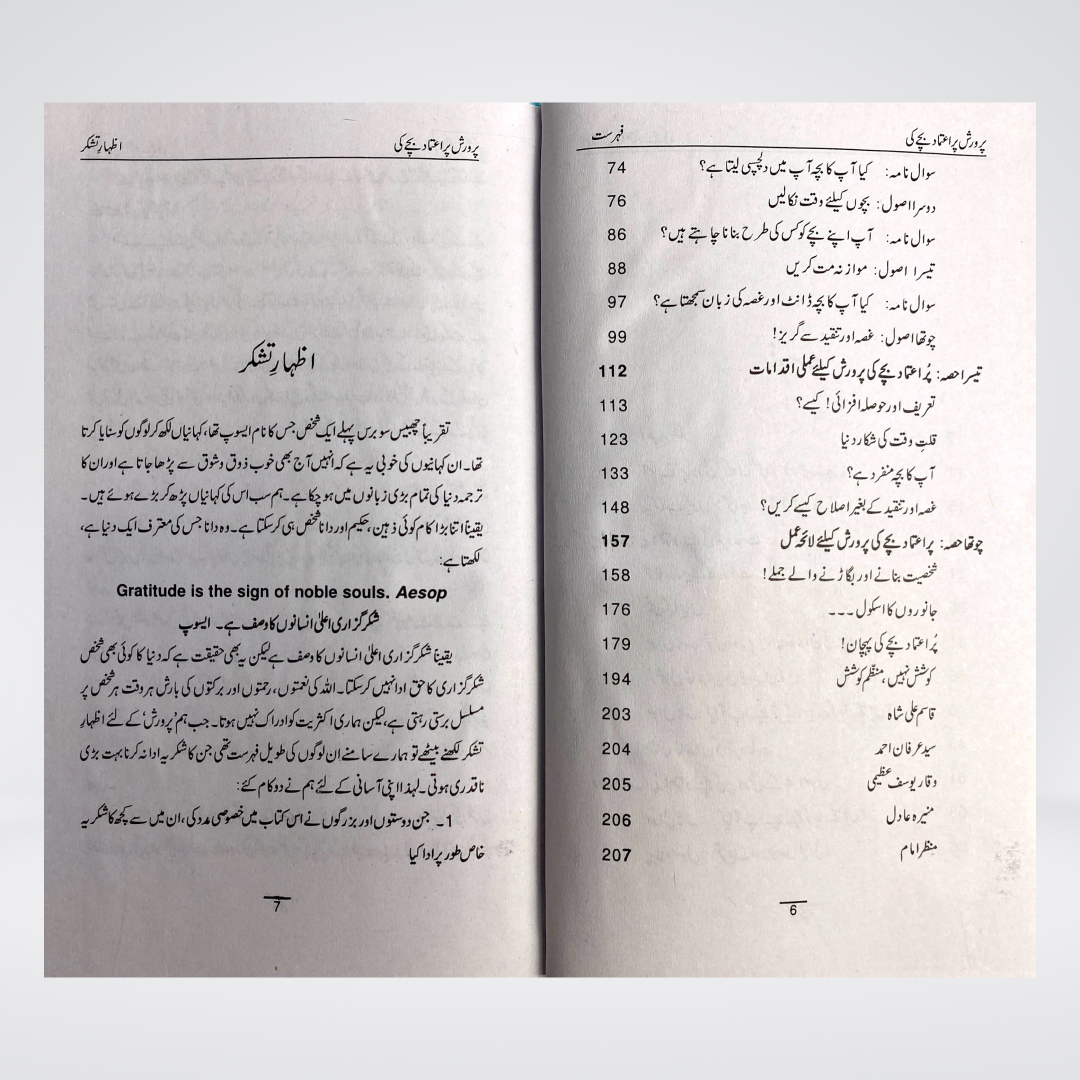 پرورش پراعتماد بچے کی فہرست
سوال نامہ: کیا آپ کا بچہ آپ میں دلچسپی لیتا ہے؟ 74
دوسرا اصول: بچوں کیلئے وقت نکالیں 76
سوال نامہ: آپ اپنے بچے کو کس کی طرح بنانا چاہتے ہیں؟ 86
تیسرا اصول: موازنہ مت کریں 88
سوال نامہ: کیا آپ کا بچہ ڈانٹ اور غصہ کی زبان سمجھتا ہے؟ 97
چوتھا اصول: غصہ اور تنقید سے گریز! 99
تیسرا حصہ: پُراعتماد بچے کی پرورش کیلئے عملی اقدامات 112
تعریف اور حوصلہ افزائی! کیسے؟ 113
قلتِ وقت کی شکار دنیا 123
آپ کا بچہ منفرد ہے؟ 133
غصہ اور تنقید کے بغیر اصلاح کیسے کریں؟ 148
چوتھا حصہ: پراعتماد بچے کی پرورش کیلئے لائحہ عمل 157
شخصیت بنانے اور بگاڑنے والے جملے! 158
جانوروں کا اسکول۔۔۔ 176
پُراعتماد بچے کی پہچان! 179
کوشش نہیں، منظّم کوشش 194
قاسم علی شاہ 203
سید عرفان احمد 204
وقار یوسف عظیمی 205
منیرہ عادل 206
منظر امام 207
6
پرورش پراعتماد بچے کی اظہارِ تشکر
اظہارِ تشکر
تقریباً چھبیس سو برس پہلے ایک شخص جس کا نام ایسوپ تھا، کہانیاں لکھ کر لوگوں کو سنایا کرتا
تھا۔ ان کہانیوں کی خوبی یہ ہے کہ انہیں آج بھی خوب ذوق و شوق سے پڑھا جاتا ہے اور ان کا
ترجمہ دنیا کی تمام بڑی زبانوں میں ہو چکا ہے۔ ہم سب اس کی کہانیاں پڑھ کر بڑے ہوئے ہیں۔
یقیناً اتنا بڑا کام کوئی ذہین، حکیم اور دانا شخص ہی کر سکتا ہے۔ وہ دانا جس کی معترف ایک دنیا ہے،
لکھتا ہے:
Gratitude is the sign of noble souls. Aesop
شکر گزاری اعلیٰ انسانوں کا وصف ہے۔ ایسوپ
یقیناً شکر گزاری اعلیٰ انسانوں کا وصف ہے لیکن یہ بھی حقیقت ہے کہ دنیا کا کوئی بھی شخص
شکر گزاری کا حق ادا نہیں کر سکتا۔ اللہ کی نعمتوں، رحمتوں اور برکتوں کی بارش ہر وقت ہر شخص پر
مسلسل برستی رہتی ہے، لیکن ہماری اکثریت کو ادراک نہیں ہوتا۔ جب ہم ’پرورش‘ کے لئے اظہارِ
تشکر لکھنے بیٹھے تو ہمارے سامنے ان لوگوں کی طویل فہرست تھی جن کا شکریہ ادا نہ کرنا بہت بڑی
ناقدری ہوتی۔ لہٰذا اپنی آسانی کے لئے ہم نے دو کام کئے:
1۔ جن دوستوں اور بزرگوں نے اس کتاب میں خصوصی مدد کی، ان میں سے کچھ کا شکریہ
خاص طور پر ادا کیا
7